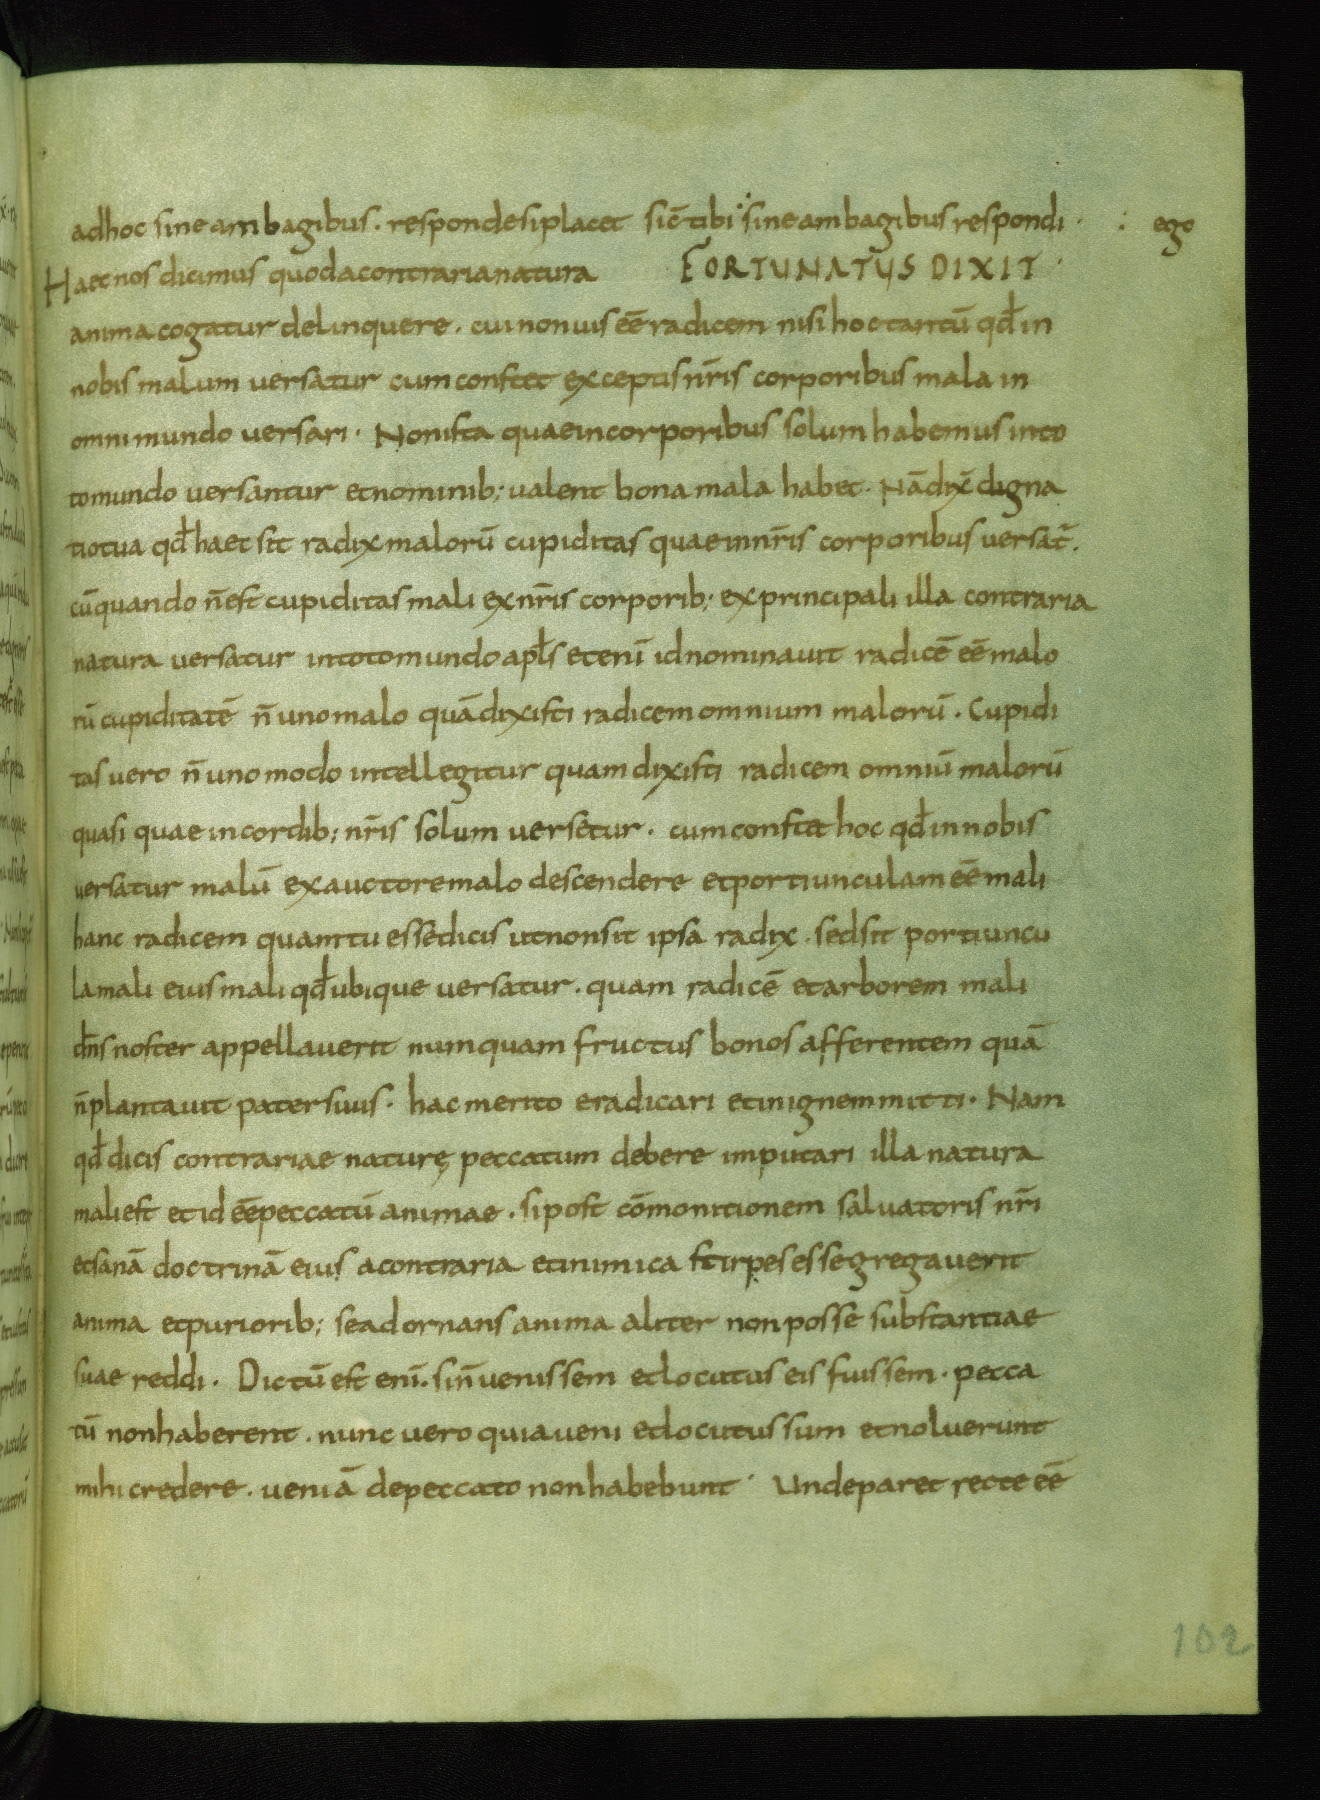 adhoc sine ambagibus. responde si placet sic̄ tibi sine ambagibus respondi · : ego
Haec nos dicimus quod a contraria natura FORTUNATUS DIXIT ·
anima cogatur delinquere. cui non uis eē radicem nisi hoc tantū qd̄ in
nobis malum versatur cum constet exceptis nr̄is corporibus mala in
omni mundo versari. Non ista quae in corporibus solum habemus in to
to mundo versantur et nominib; valent bona mala habet. Nā dix̄ digna
tio tua qd̄ haec sit radix malorū cupiditas quae in nr̄is corporibus versat̄.
cū quando n̄ est cupiditas mali ex nr̄is corporib; ex principali illa contraria
natura versatur in toto mundo apl̄s etenī id nominauit radicē eē malo
rū cupiditatē n̄ uno malo quā dixisti radicem omnium malorū. Cupidi
tas vero n̄ uno modo intellegitur quam dixisti radicem omniū malorū
quasi quae in cordib; nr̄is solum versetur. cum constat hoc qd̄ in nobis
versatur malū ex auctore malo descendere et portiunculam eē mali
hanc radicem quam tu esse dicis ut non sit ipsa radix. sed sit portiuncu
la mali eius mali qd̄ ubique versatur. quam radicē et arborem mali
dn̄s noster appellauerit numquam fructus bonos afferentem quā
n̄ plantauit pater suus. hac merito eradicari et in ignem mitti. Nam
qd̄ dicis contrariae naturę peccatum debere imputari illa natura
mali est et id eē peccatū animae. si post cōmonitionem salvatoris nr̄i
et sanā doctrinā eius a contraria et inimica stirpe se segregaverit
anima et puriorib; se adornans anima aliter non posse substantiae
suae reddi. Dictū est enī. si n̄ venissem et locutus eis fuissem. pecca
tū non haberent. nunc vero quia veni et locutus sum et noluerunt
mihi credere. veniā de peccato non habebunt · Unde paret recte eē
102